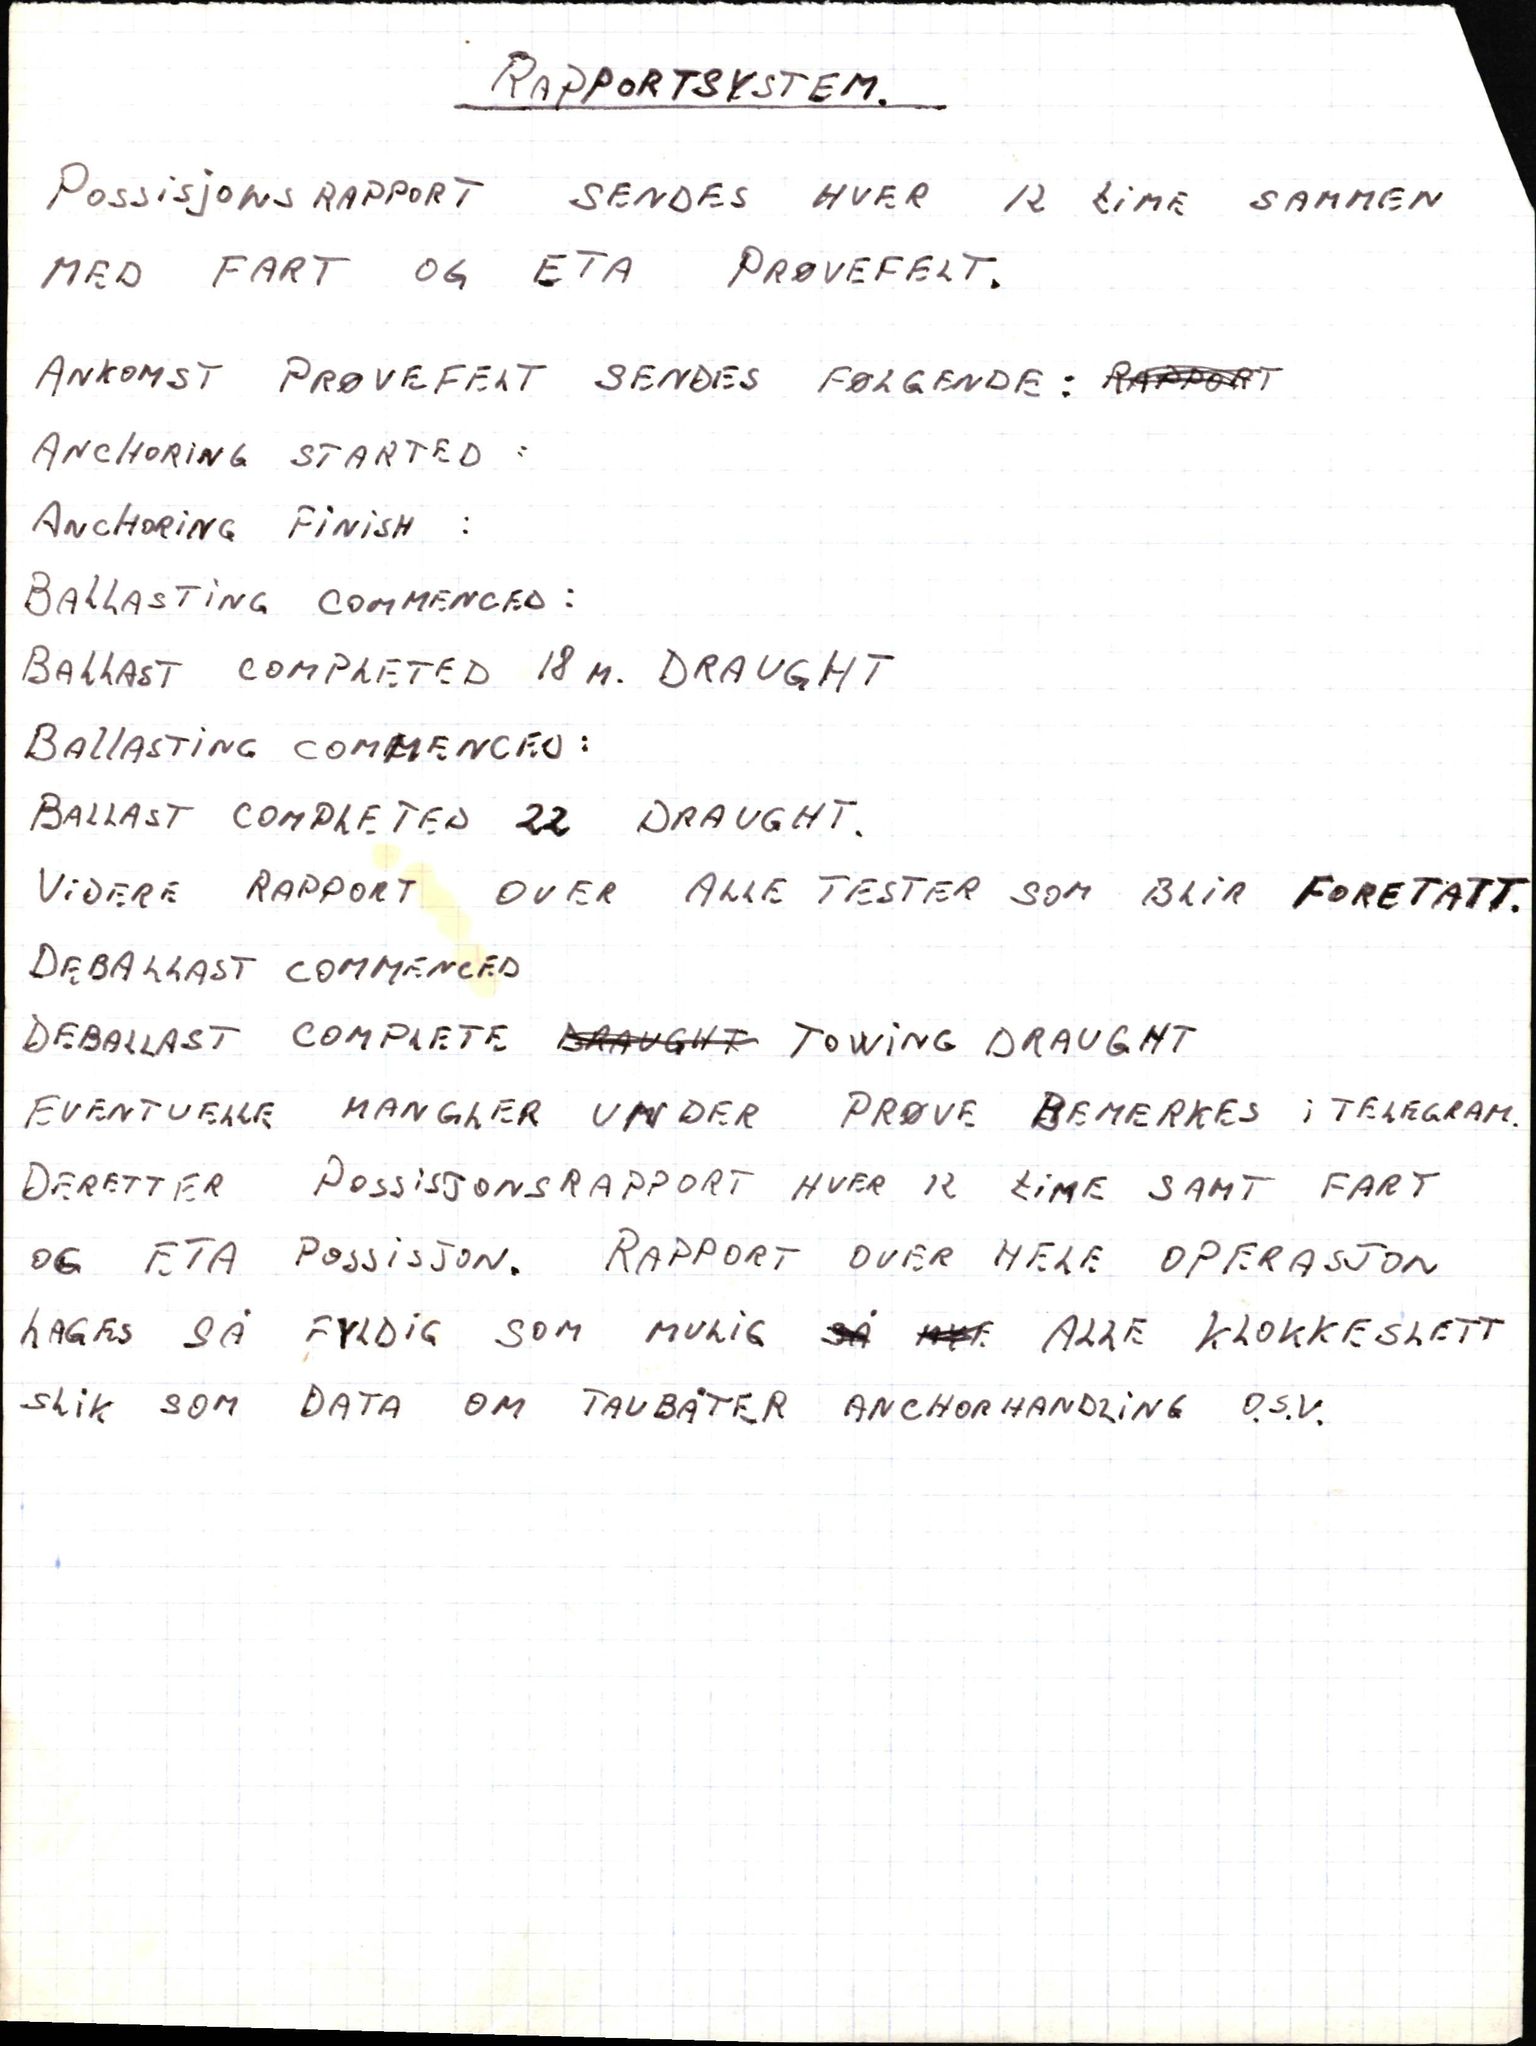 RAPPORTSYSTEM.
POSSISJONSRAPPORT SENDES HVER 12 TIME SAMMEN
MED FART OG ETA PRØVEFELT.
ANKOMST PRØVEFELT SENDES FØLGENDE: RAPPORT
ANCHORING STARTED :
ANCHORING FINISH :
BALLASTING COMMENCED:
BALLAST COMPLETED 18 M. DRAUGHT
BALLASTING COMMENCED:
BALLAST COMPLETED 22 DRAUGHT.
VIDERE RAPPORT OVER ALLE TESTER SOM BLIR FORETATT.
DEBALLAST COMMENCED
DEBALLAST COMPLETE DRAUGHT TOWING DRAUGHT
EVENTUELLE MANGLER UNDER PRØVE BEMERKES I TELEGRAM.
DERETTER POSSISJONSRAPPORT HVER 12 TIME SAMT FART
OG ETA POSSISJON. RAPPORT OVER HELE OPERASJON
LAGES SÅ FYLDIG SOM MULIG SÅ ALLE KLOKKESLETT
SLIK SOM DATA OM TAUBÅTER ANCHORHANDLING O.S.V.